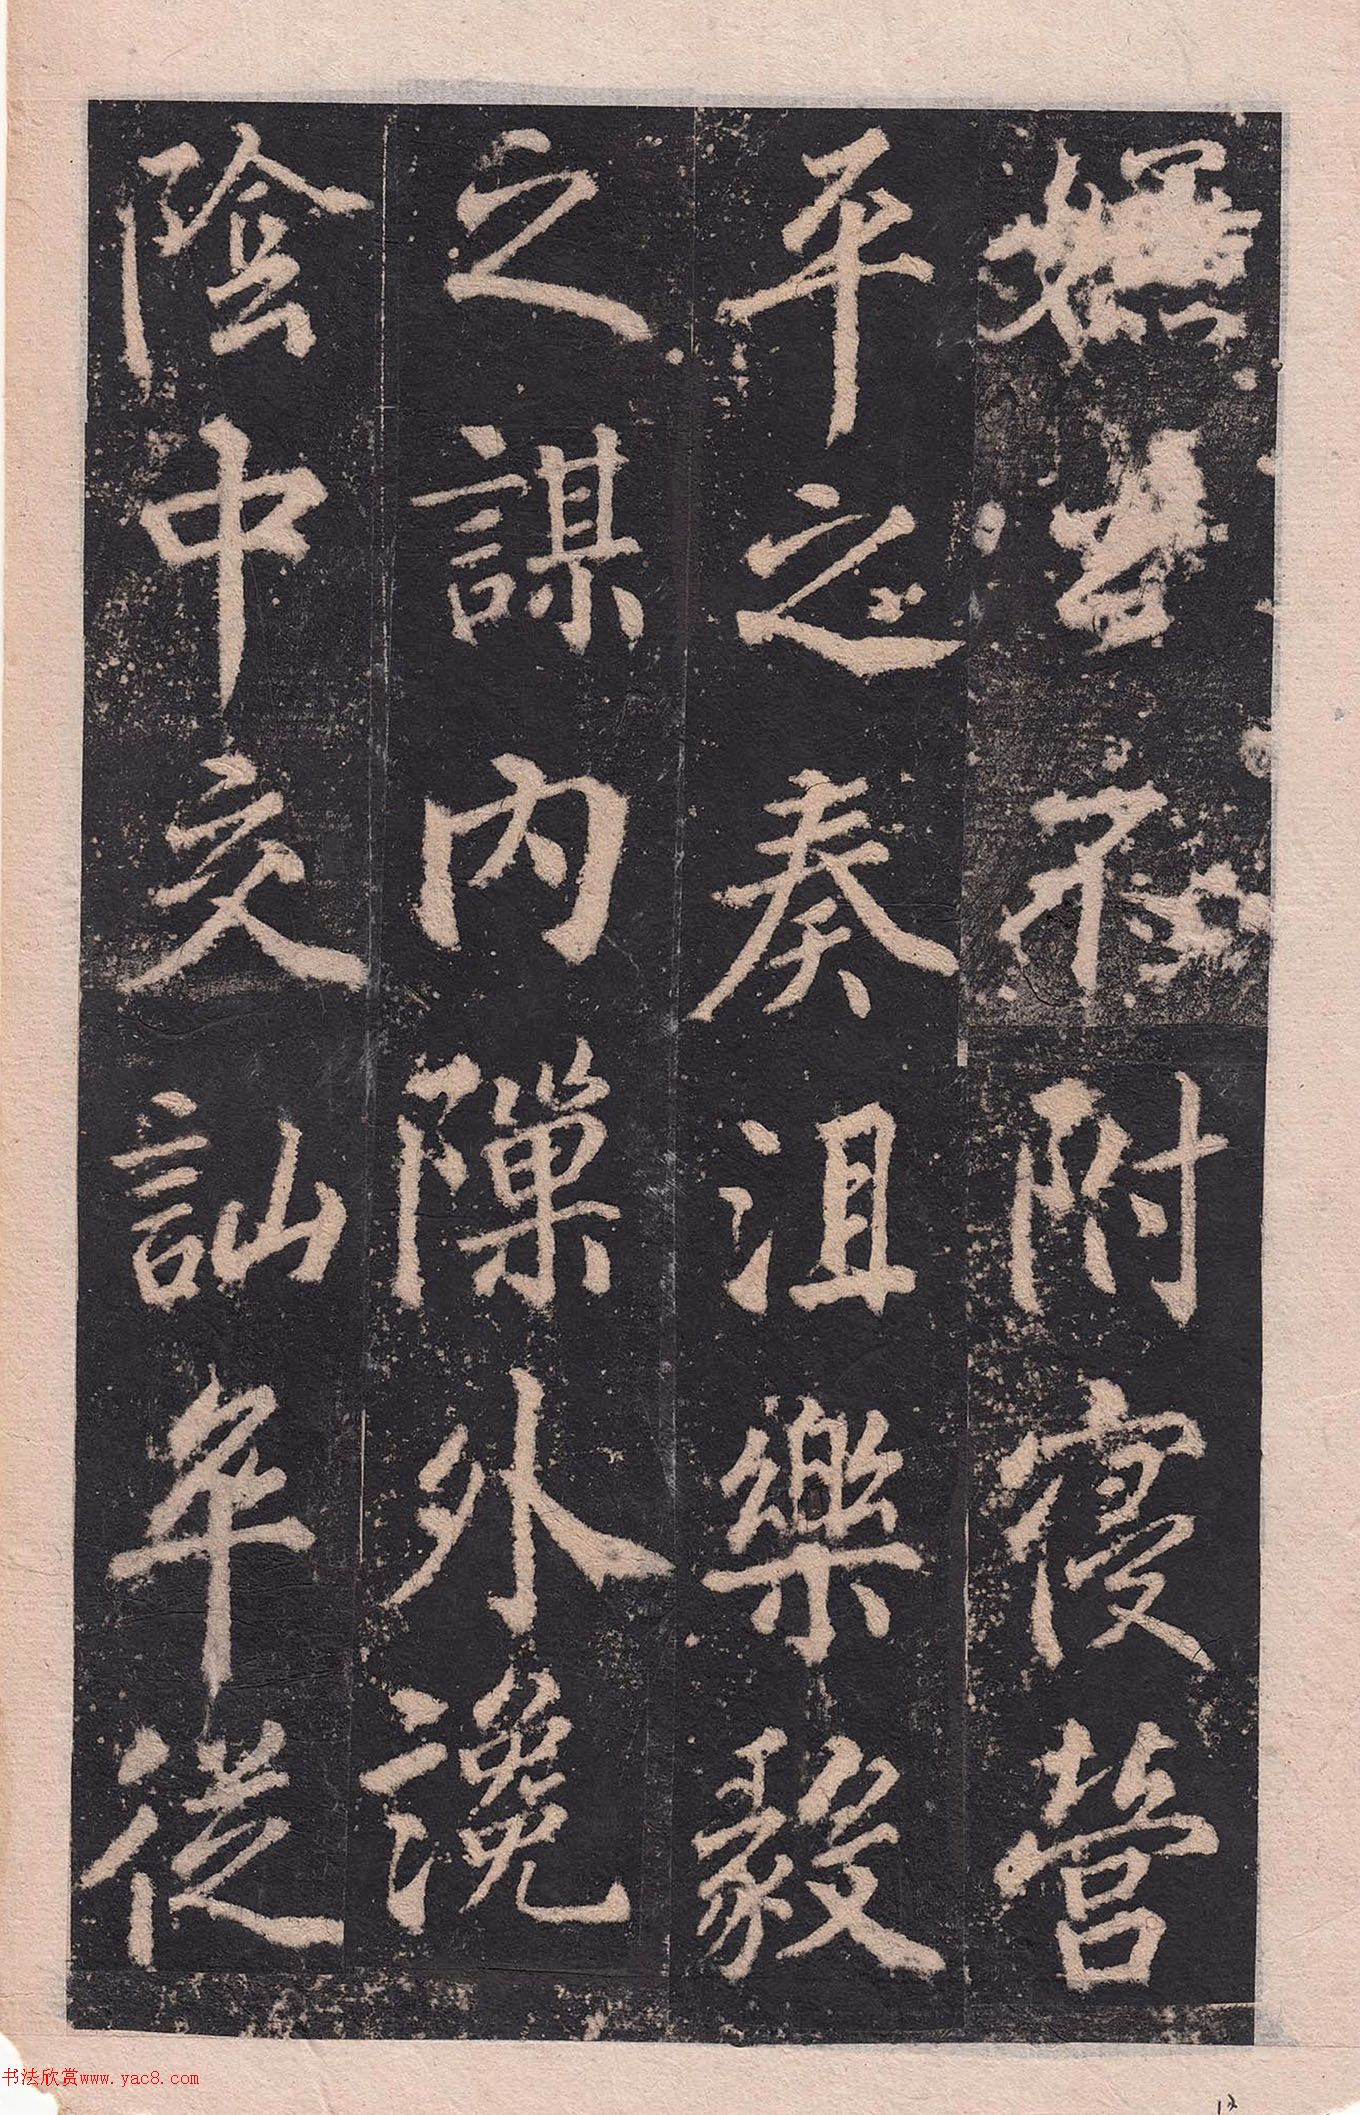 不附寖營
平之奏沮樂毅
之謀內隟外讒
陰中交訕年從
书法欣赏www.yac8.com
12